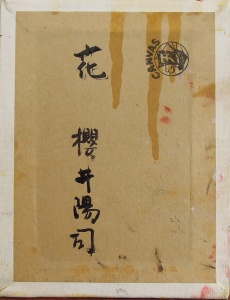 花
櫻井陽司
CANVAS